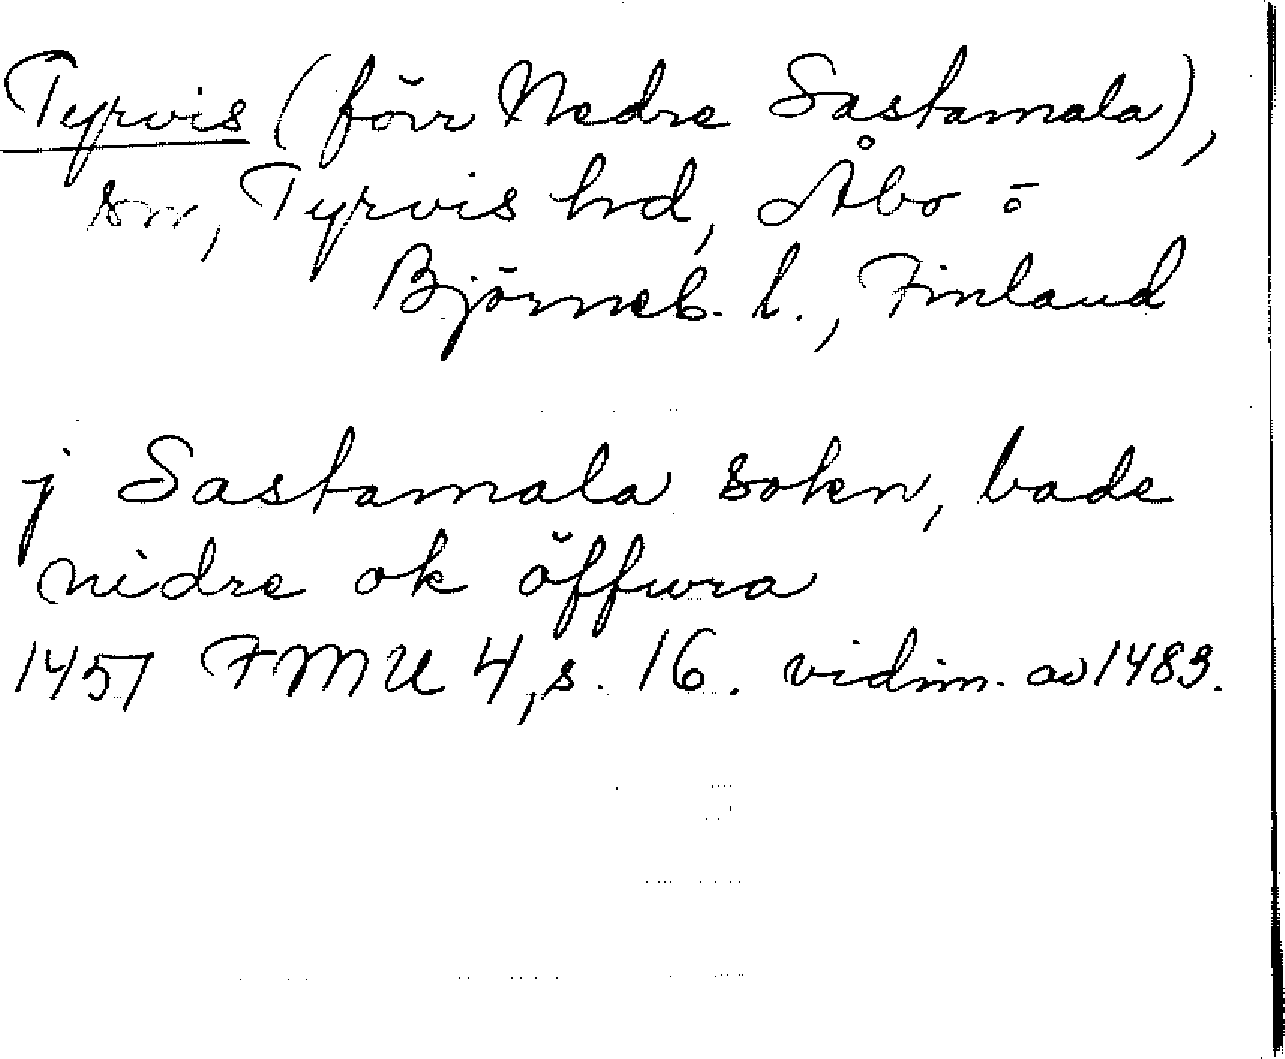 Tyrvis (förr Nedre Sastamala),
sn, Tyrvis hd, Åbo o
Björneb. l., Finland
j Sastamala sokn, bade
nidre ok öffwra
1457 FMU 4, s. 16. vidim. av 1483.